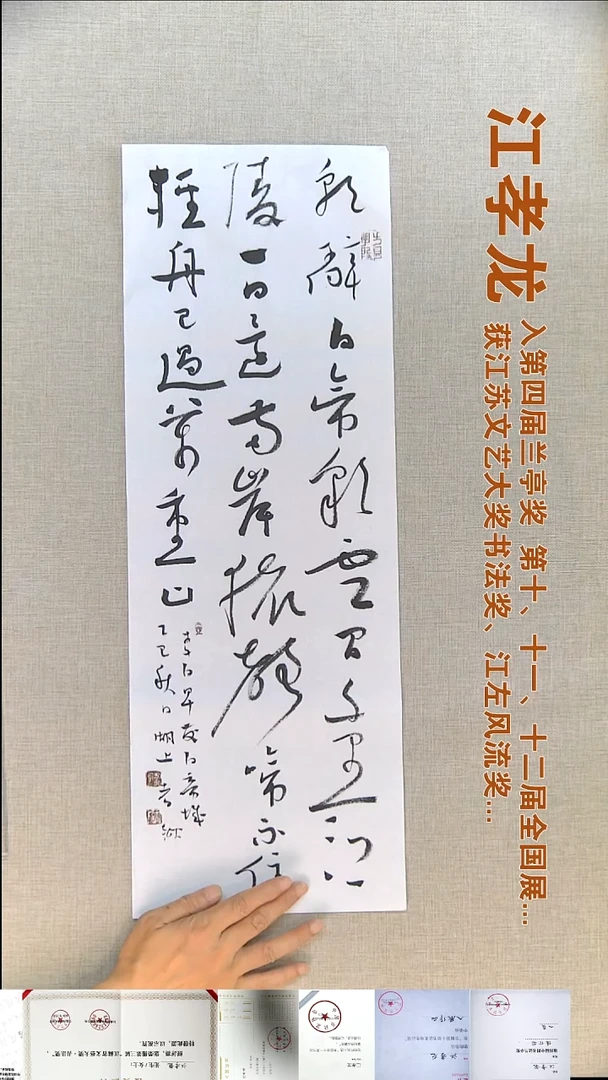 江孝龙
入第四届兰亭奖 第十、十一、十二届全国展...
获江苏文艺大奖书法奖、江左风流奖...
朝辭白帝彩雲間千里江
陵一日還两岸猿聲啼不住
輕舟已過萬重山
李白早發白帝城
乙巳秋日湖上孝龍